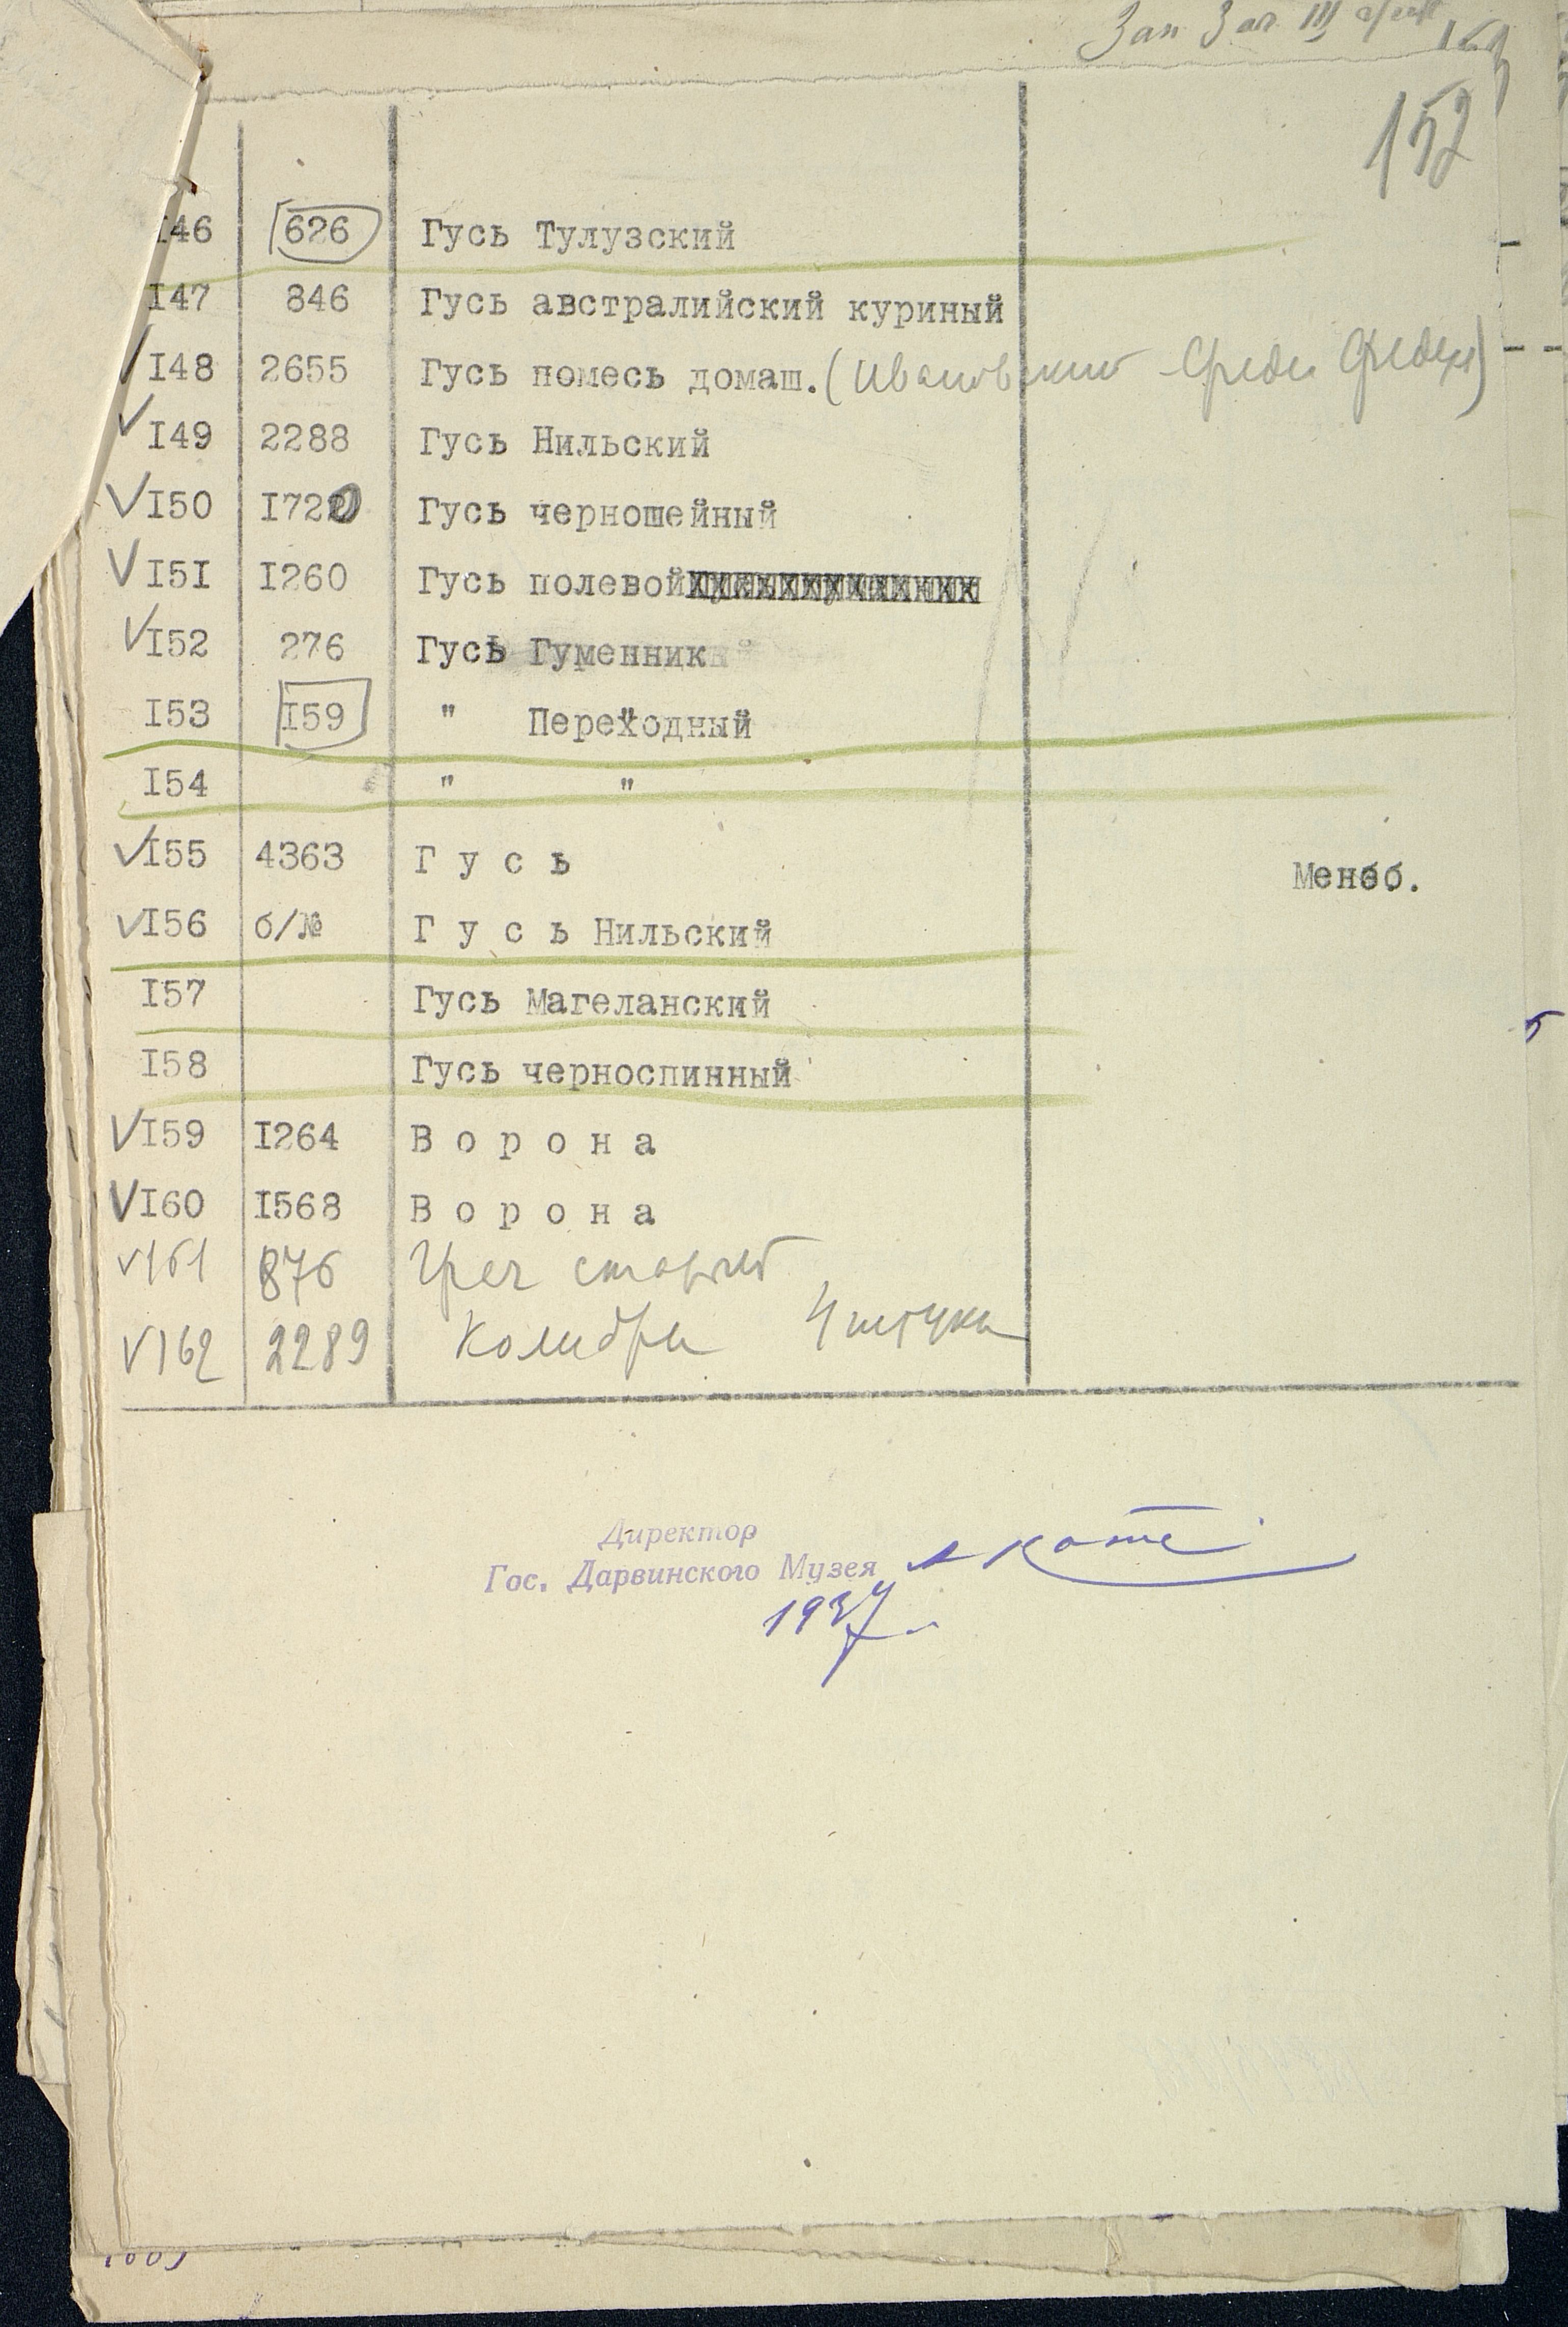 Зап Зал III
152
I46 626 Гусь Тулузский
I47 846 Гусь австралийский куриный
I48 2655 Гусь помесь домаш. (
I49 2288 Гусь Нильский
I50 1720 Гусь черношейный
I51 I260 Гусь полевой
I52 276 Гусь Гуменник
I53 I59 " Переходный
I54 " "
I55 4363 Г у с ь Мензб.
I56 б/№ Г у с ь Нильский
I57 Гусь Магеланский
I58 Гусь черноспинный
I59 I264 В о р о н а
I60 I568 В о р о н а
161 876
162 2289 Колибри 4 штуки
Директор
Гос. Дарвинского Музея А Котс
1937